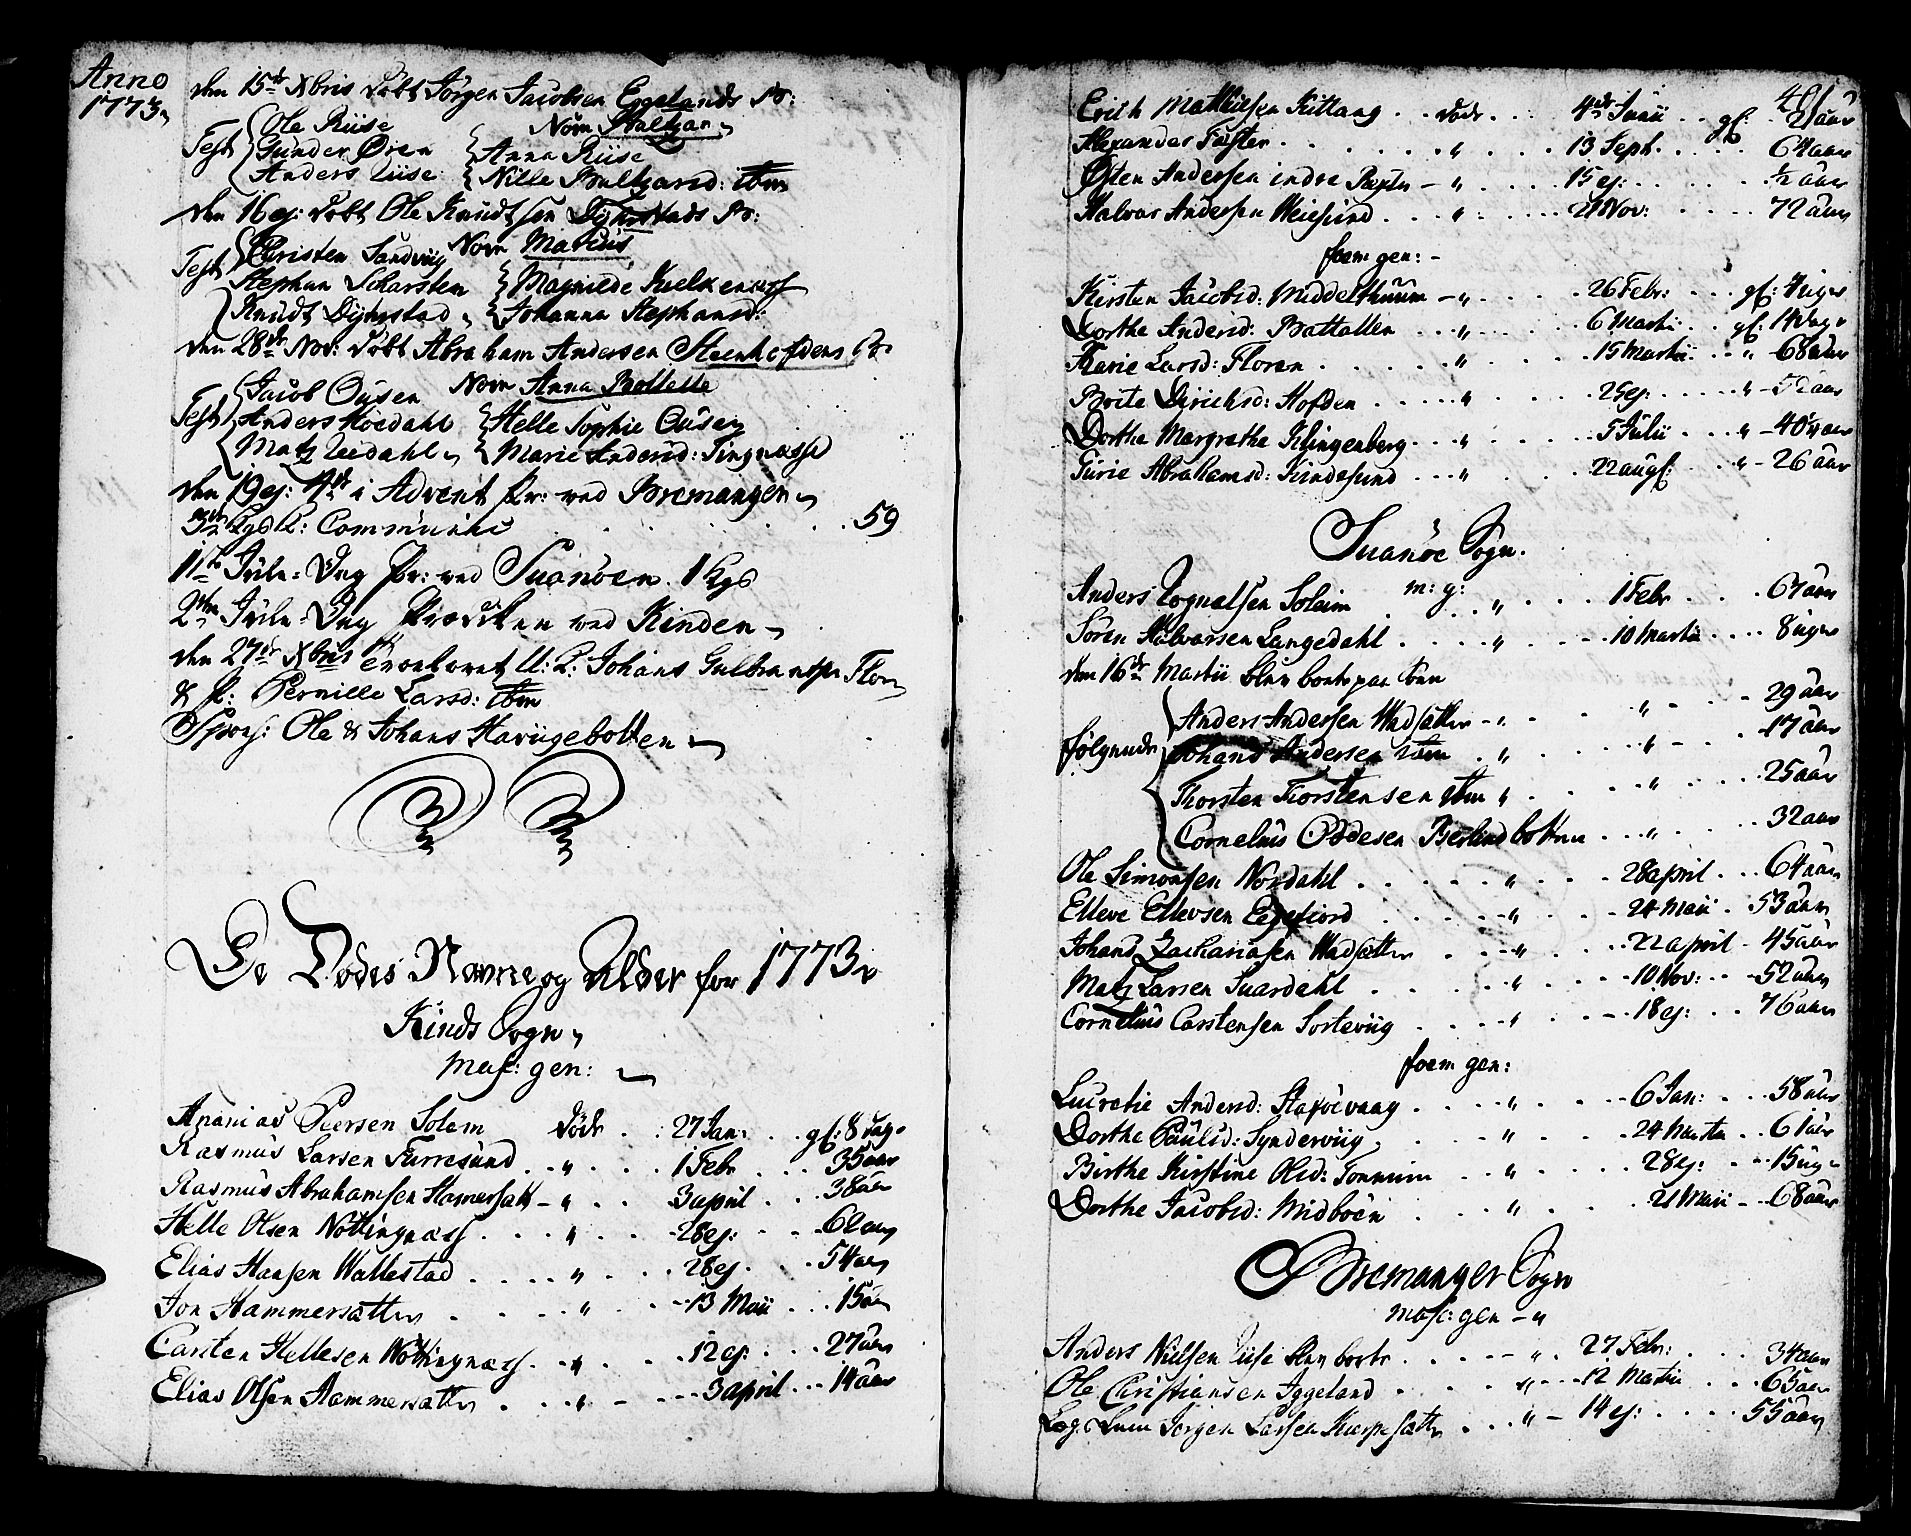 Anno
1773
den 15de Xbris döbt Jörgen Jacobsen Eggelands B:
Nom Baltzar
Test Ole Riise
Gunder Ören Anna Riise
Anders Riise Nille Baltzarsd: ibm
den 16 ej: döbt Ole Knudtsen Dÿmstads B:
Nom Marius
Test Christen Sandviig
Stephan Scharsten Magnilde
Knudt Dÿmstad Johanna Stephansd:
den 28de Nov: döbt Abraham Andersen Steenhofdens B:
Nom Anna Bollette
Test Jacob Ousen
Anders Höedahl Helle Sophie Ousen
Matz Leedahl Marie Andersd: Tingnæsse
den 19 ej: 4de i Advent Pr: ved Bremanger
Communic 59
1ste Jule-Dag Pr: ved Suanöen. 1 Kgs
2den Jule-Dag Prædiken ved Kinden
den 27de Xbris Troeloret U: K: Johans Gulbrantsen Floren
& P: Pernille Larsd: ibm
Spons: Ole & Johans Haviigebotten
De Dödes Navne og Alder for 1773
Kinds Sogn
Masc: gen:
Ananias Peersen Solem döde 27 Jan: gl: 8 Dage
Rasmus Larsen Furresund " 1 Febr 35 aar
Rasmus Abrahamsen Hamersæt " 3 april 38 aar
Helle Olsen Nöttingnæss " 28 ej: 62 aar
Elias Hansen Wallestad " 28 ej. 54 aar
Jon Hammersætter " 13 Maii 15 aar
Carsten Hellesen Nöttingnæss " 12 ej: 27 aar
Elias Olsen Hammersætter " 3 april 14 aar
481
Erich Mathiesen Kittang döde 4de Junii gl: aar
Alexander Faster " 13 Sept. 64 aar
Östen Andersen indre " 15 ej: ½ aar
Halvor Andersen Weiesund " 21 Nov: 72 aar
foem gen:
Kirsten Jacobsd: Middelthuun " 26 Febr: gl: 4 uger
Dorthe Andersd: Battalden " 6 Martii gl: 14 Dage
Marie Larsd: Floren " 15 Martii " 68 aar
Brite Dirichsd: Hofden " 25 ej: " 52 aar
Dorthe Margrethe Klingenberg " 5 Julii " 40 aar
Turie Abrahamsd: Kindesund " 22 augl: " 26 aar
Suanöe Sogn.
m: g:
Anders Rognalsen Soleim " 1 Febr 67 aar
Sören Halvorsen Langedahl " 10 Martii 8 uger
den 16de Martii blev borte paa Söen
Anders Andersen Wadsætter " 29 aar
fölgende Johans Andersen ibm " 17 aar
Thorsten Thorstensen ibm " 25 aar
Cornelius Oddesen Berlandbotten " 32 aar
Ole Simonsen Nordahl " 28 april 64 aar
Elleve Ellevsen Eigefiord " 24 Maii 53 aar
Johans Zachariasen Wadsætter " 22 april 45 aar
Matz Larsen Suardahl " 10 Nov: 52 aar
Cornelius Carstensen Sorteviig " 18 ej: 76 aar
foem gen:
Lucretie Andersd: Staföevaag " 6 Jan: 58 aar
Dorthe Paulsd: Synderviig " 24 Martii 61 aar
Birthe Kirstine Olsd: Tonnum " 28 ej: 15 uger
Dorthe Jacobsd: Midböen " 21 Maii 68 aar
Bremanger Sogn
Masc: gen "
Anders Nielsen Riise blev borte " 27 Febr: 34 aar
Ole Christiansen Iggeland " 12 Martii 65 aar
Jörgen Larsen " 14 ej: 55 aar